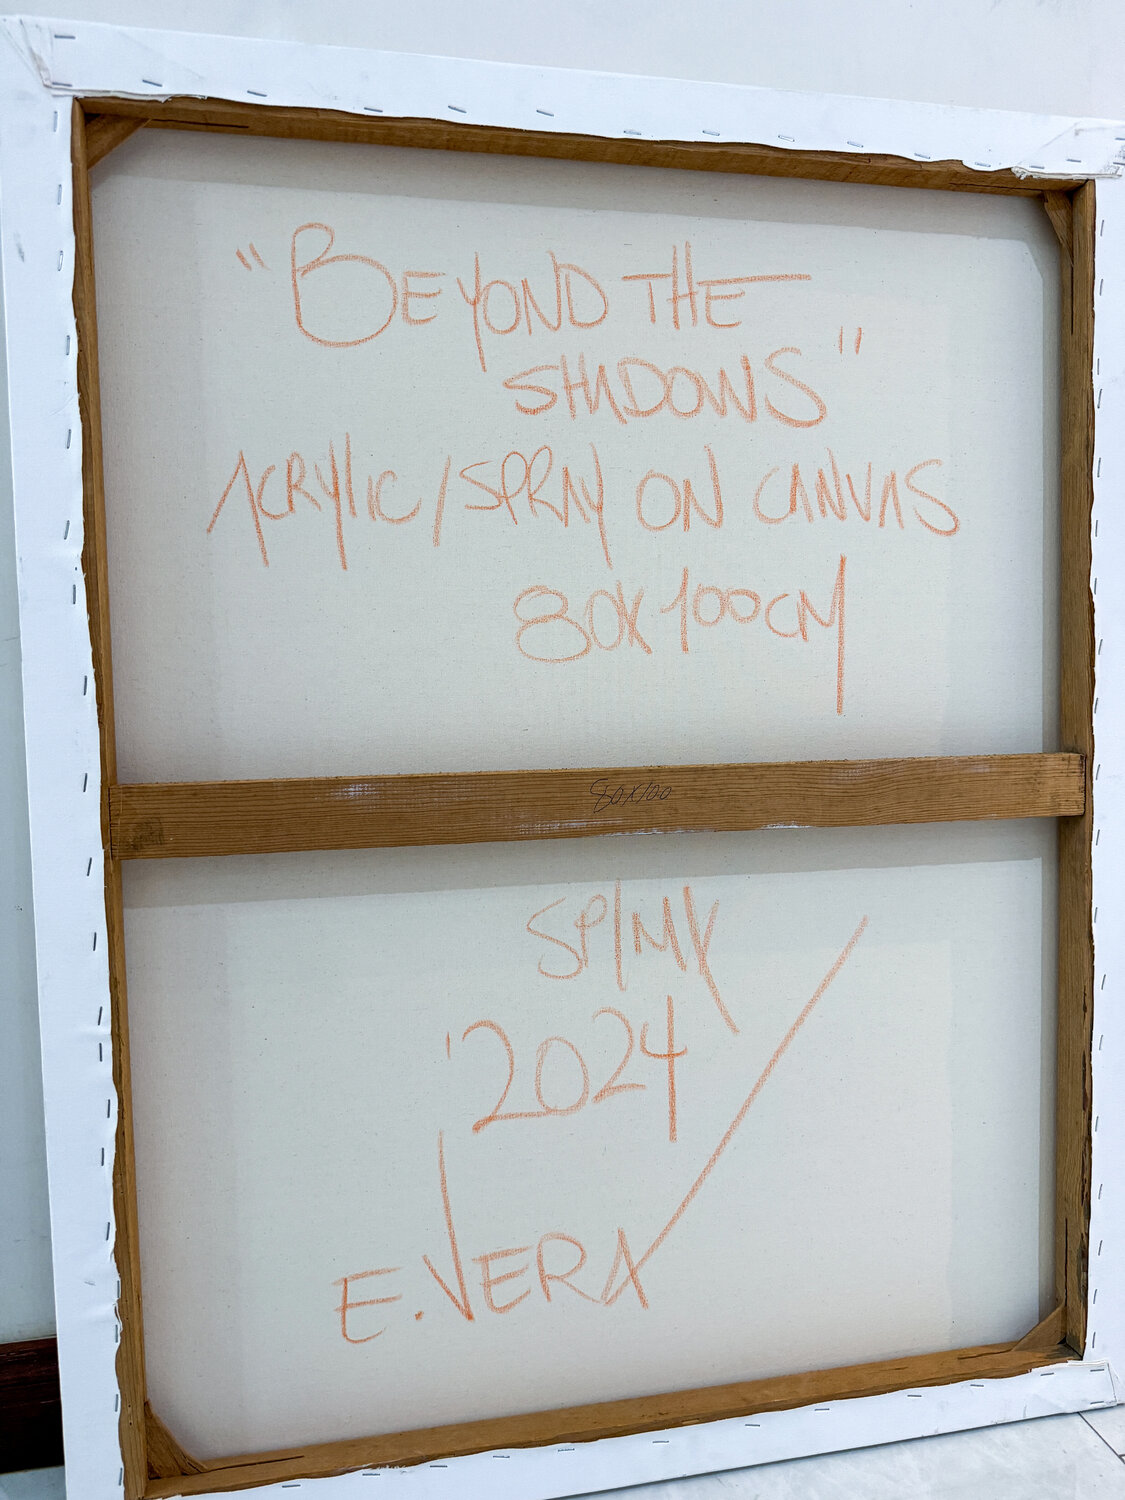 "BEYOND THE
SHADOWS"
ACRYLIC/SPRAY ON CANVAS
80X100CM
80x100
SPIMY
'2024
E.VERA